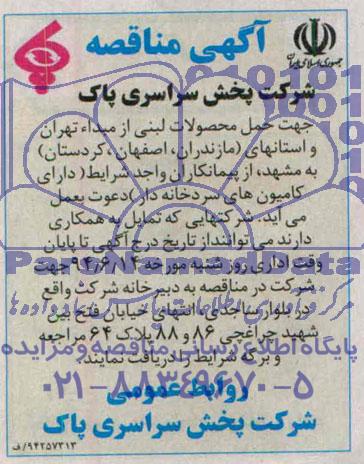 آگهی مناقصه
جمهوری اسلامی ایران
شرکت پخش سراسری پاک
جهت حمل محصولات لبنی از مبداء تهران
و استانهای (مازندران، اصفهان، کردستان)
به مشهد، از پیمانکاران واجد شرایط( دارای
کامیون های سردخانه دار )دعوت بعمل
می آید، شرکتهایی که تمایل به همکاری
دارند می توانند از تاریخ درج آگهی تا پایان
وقت اداری روز شنبه مورخه ۹۴٫۶٫۱۴ جهت
شرکت در مناقصه به دبیرخانه شرکت واقع
در بلوار ساجدی انتهای خیابان فتح بین
شهید چراغچی ۸۶ و ۸۸ پلاک ۶۴ مراجعه
و برگه شرایط را دریافت نمایند.
روابط عمومی
شرکت پخش سراسری پاک
۹۴۲۵۷۳۱۳/ف
ParsNamadData
پایگاه اطلاع رسانی مناقصه و مزایده
۰۲۱-۸۸۳۴۹۶۷۰-۵